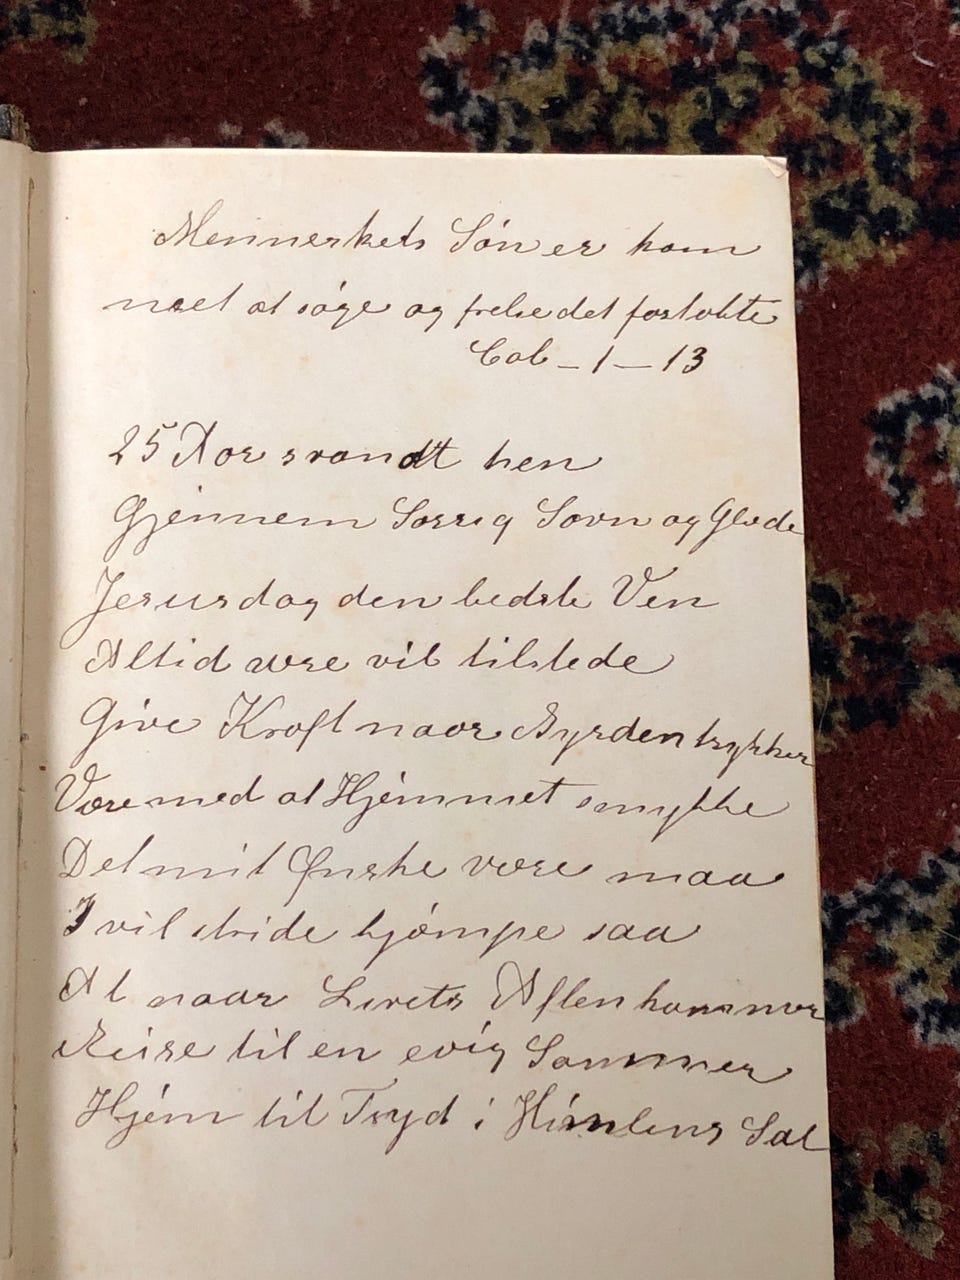 Menneskets Søn er kom
met at søge og frelse det fortabte
Col – 1 – 13
25 Aar svandt hen
Gjennem Sorrig Savn og Glæde
Jesus dog den bedste Ven
Altid være vil tilstede
Give Kraft naar Byrden trykker
Være med at Hjemmet smykke
Det mit Ønske være maa
I vil stride kjæmpe saa
At naar Livets Aften kommer
Reise til en evig Sommer
Hjem til Fryd i Himlens Sal